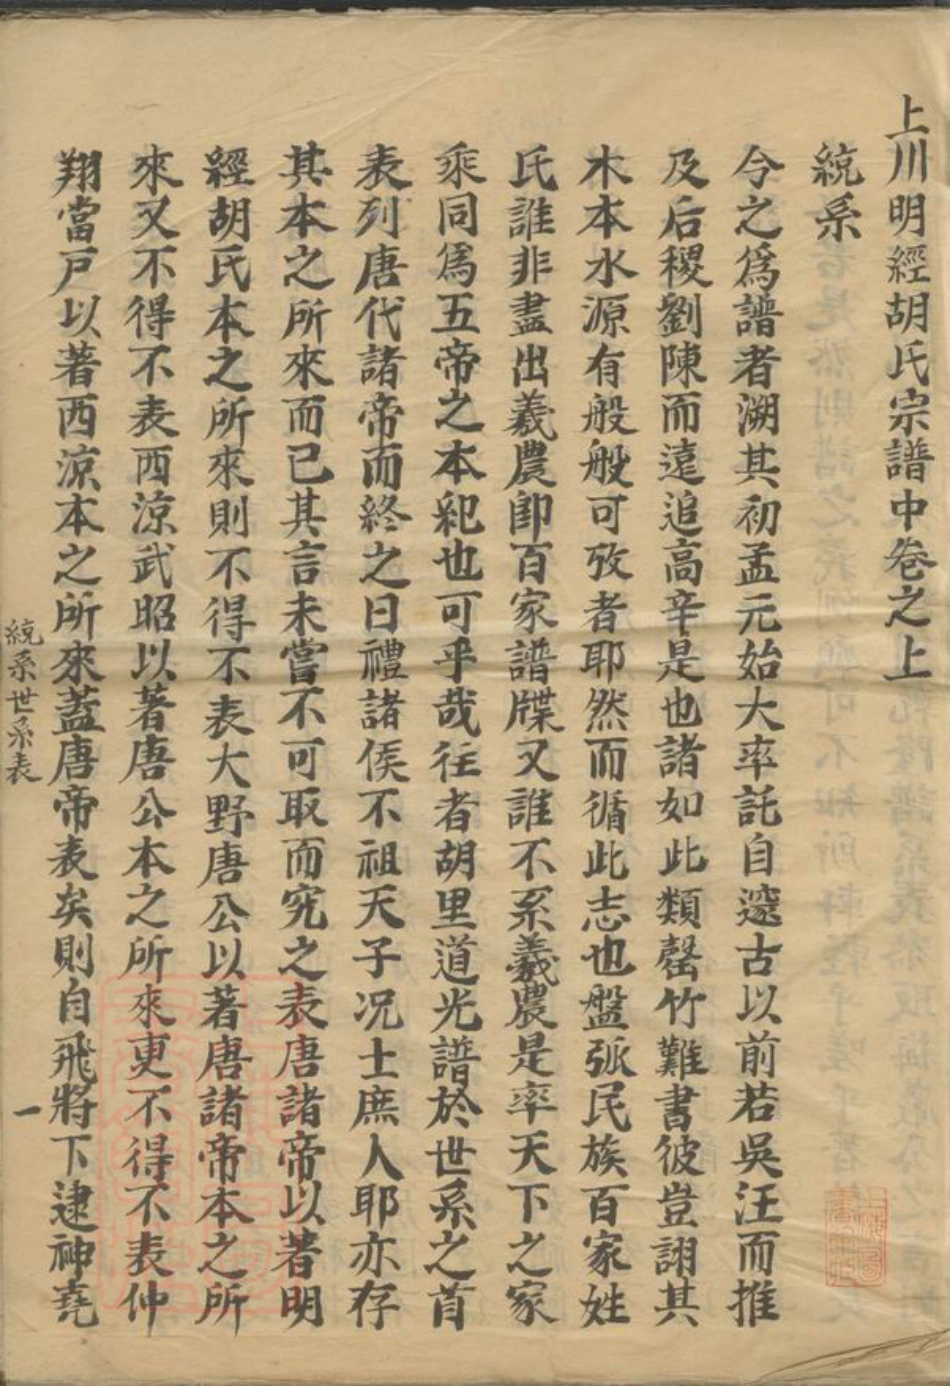 上川明經胡氏宗譜中卷之上
統系
今之爲譜者溯其初孟元始大率託自邃古以前若吳汪而推
及后稷劉陳而遠追高辛是也諸如此類罄竹難書彼豈詡其
木本水源有般般可攷者耶然而循此志也盤弧民族百家姓
氏誰非盡出羲農卽百家譜牒又誰不系羲農是率天下之家
乘同爲五帝之本紀也可乎哉往者胡里道光譜於世系之首
表列唐代諸帝而終之曰禮諸侯不祖天子况士庶人耶亦存
其本之所來而已其言未嘗不可取而究之表唐諸帝以著明
經胡氏本之所來則不得不表大野唐公以著唐諸帝本之所
來又不得不表西涼武昭以著唐公本之所來更不得不表仲
翔當戶以著西涼本之所來蓋唐帝表矣則自飛將下逮神堯
統系世系表
一